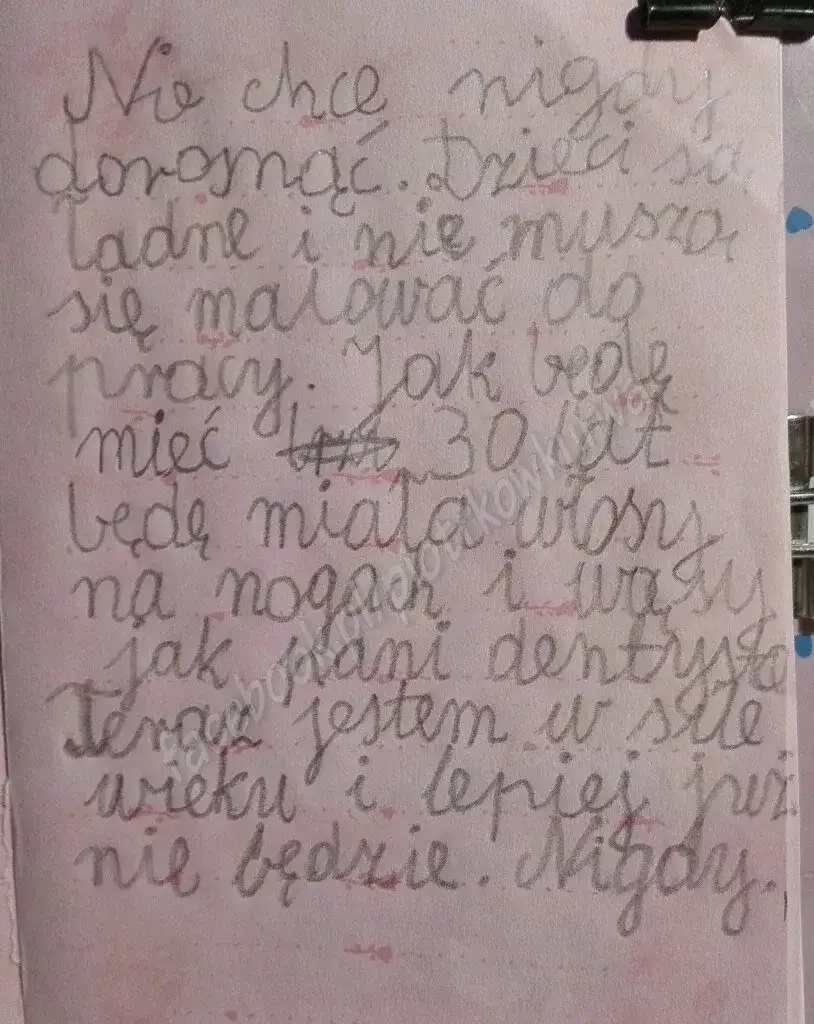 Nie chcę nigdy
dorosnąć. Dzieci są
ładne i nie muszą
się malować do
pracy. Jak będę
mieć 30 lat
będę miała włosy
na nogach i wąsy
jak pani dentystka
Teraz jestem w sile
wieku i lepiej już
nie będzie. Nigdy.
facebook.pl/plotkowkijowe